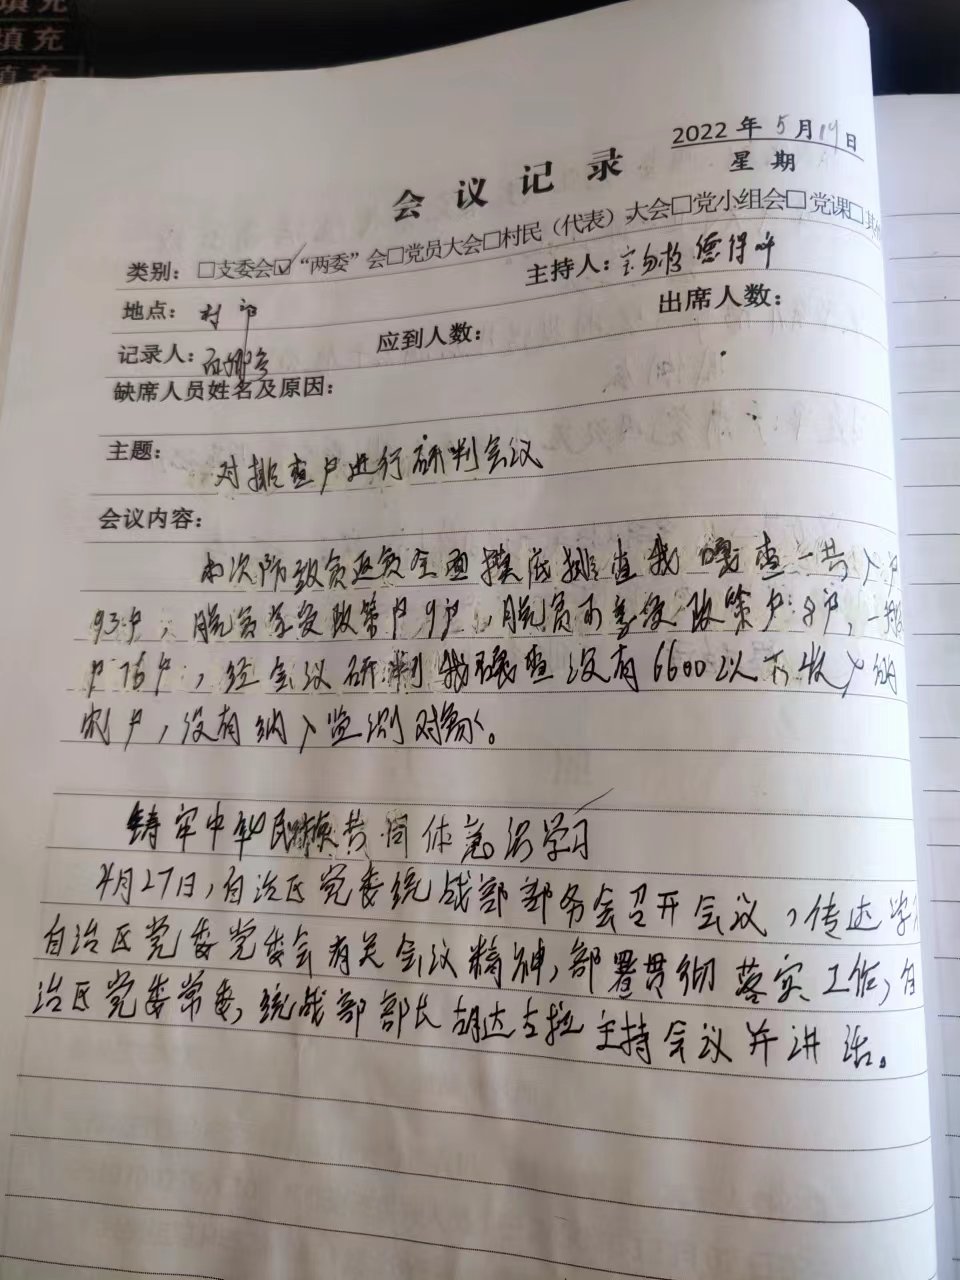 填充
填充
填充
2022 年 5 月 19 日
星 期
会 议 记 录
类别：□支委会☑“两委”会□党员大会□村民（代表）大会□党小组会□党课□其
地点： 村部 主持人：
记录人： 应到人数： 出席人数：
缺席人员姓名及原因：
主题： 对排查户进行研判会议
会议内容：
本次防致贫返贫全面摸底排查我嘎查一共入户
93户，脱贫享受政策户9户，脱贫不享受政策户8户，一般
户76户，经会议研判我嘎查没有6600以下收入的
户，没有纳入监测对象。
铸牢中华民族共同体意识学习
4月27日，自治区党委统战部部务会召开会议，传达学习
自治区党委党委会有关会议精神，部署贯彻落实工作，自
治区党委常委，统战部部长胡达古拉主持会议并讲话。